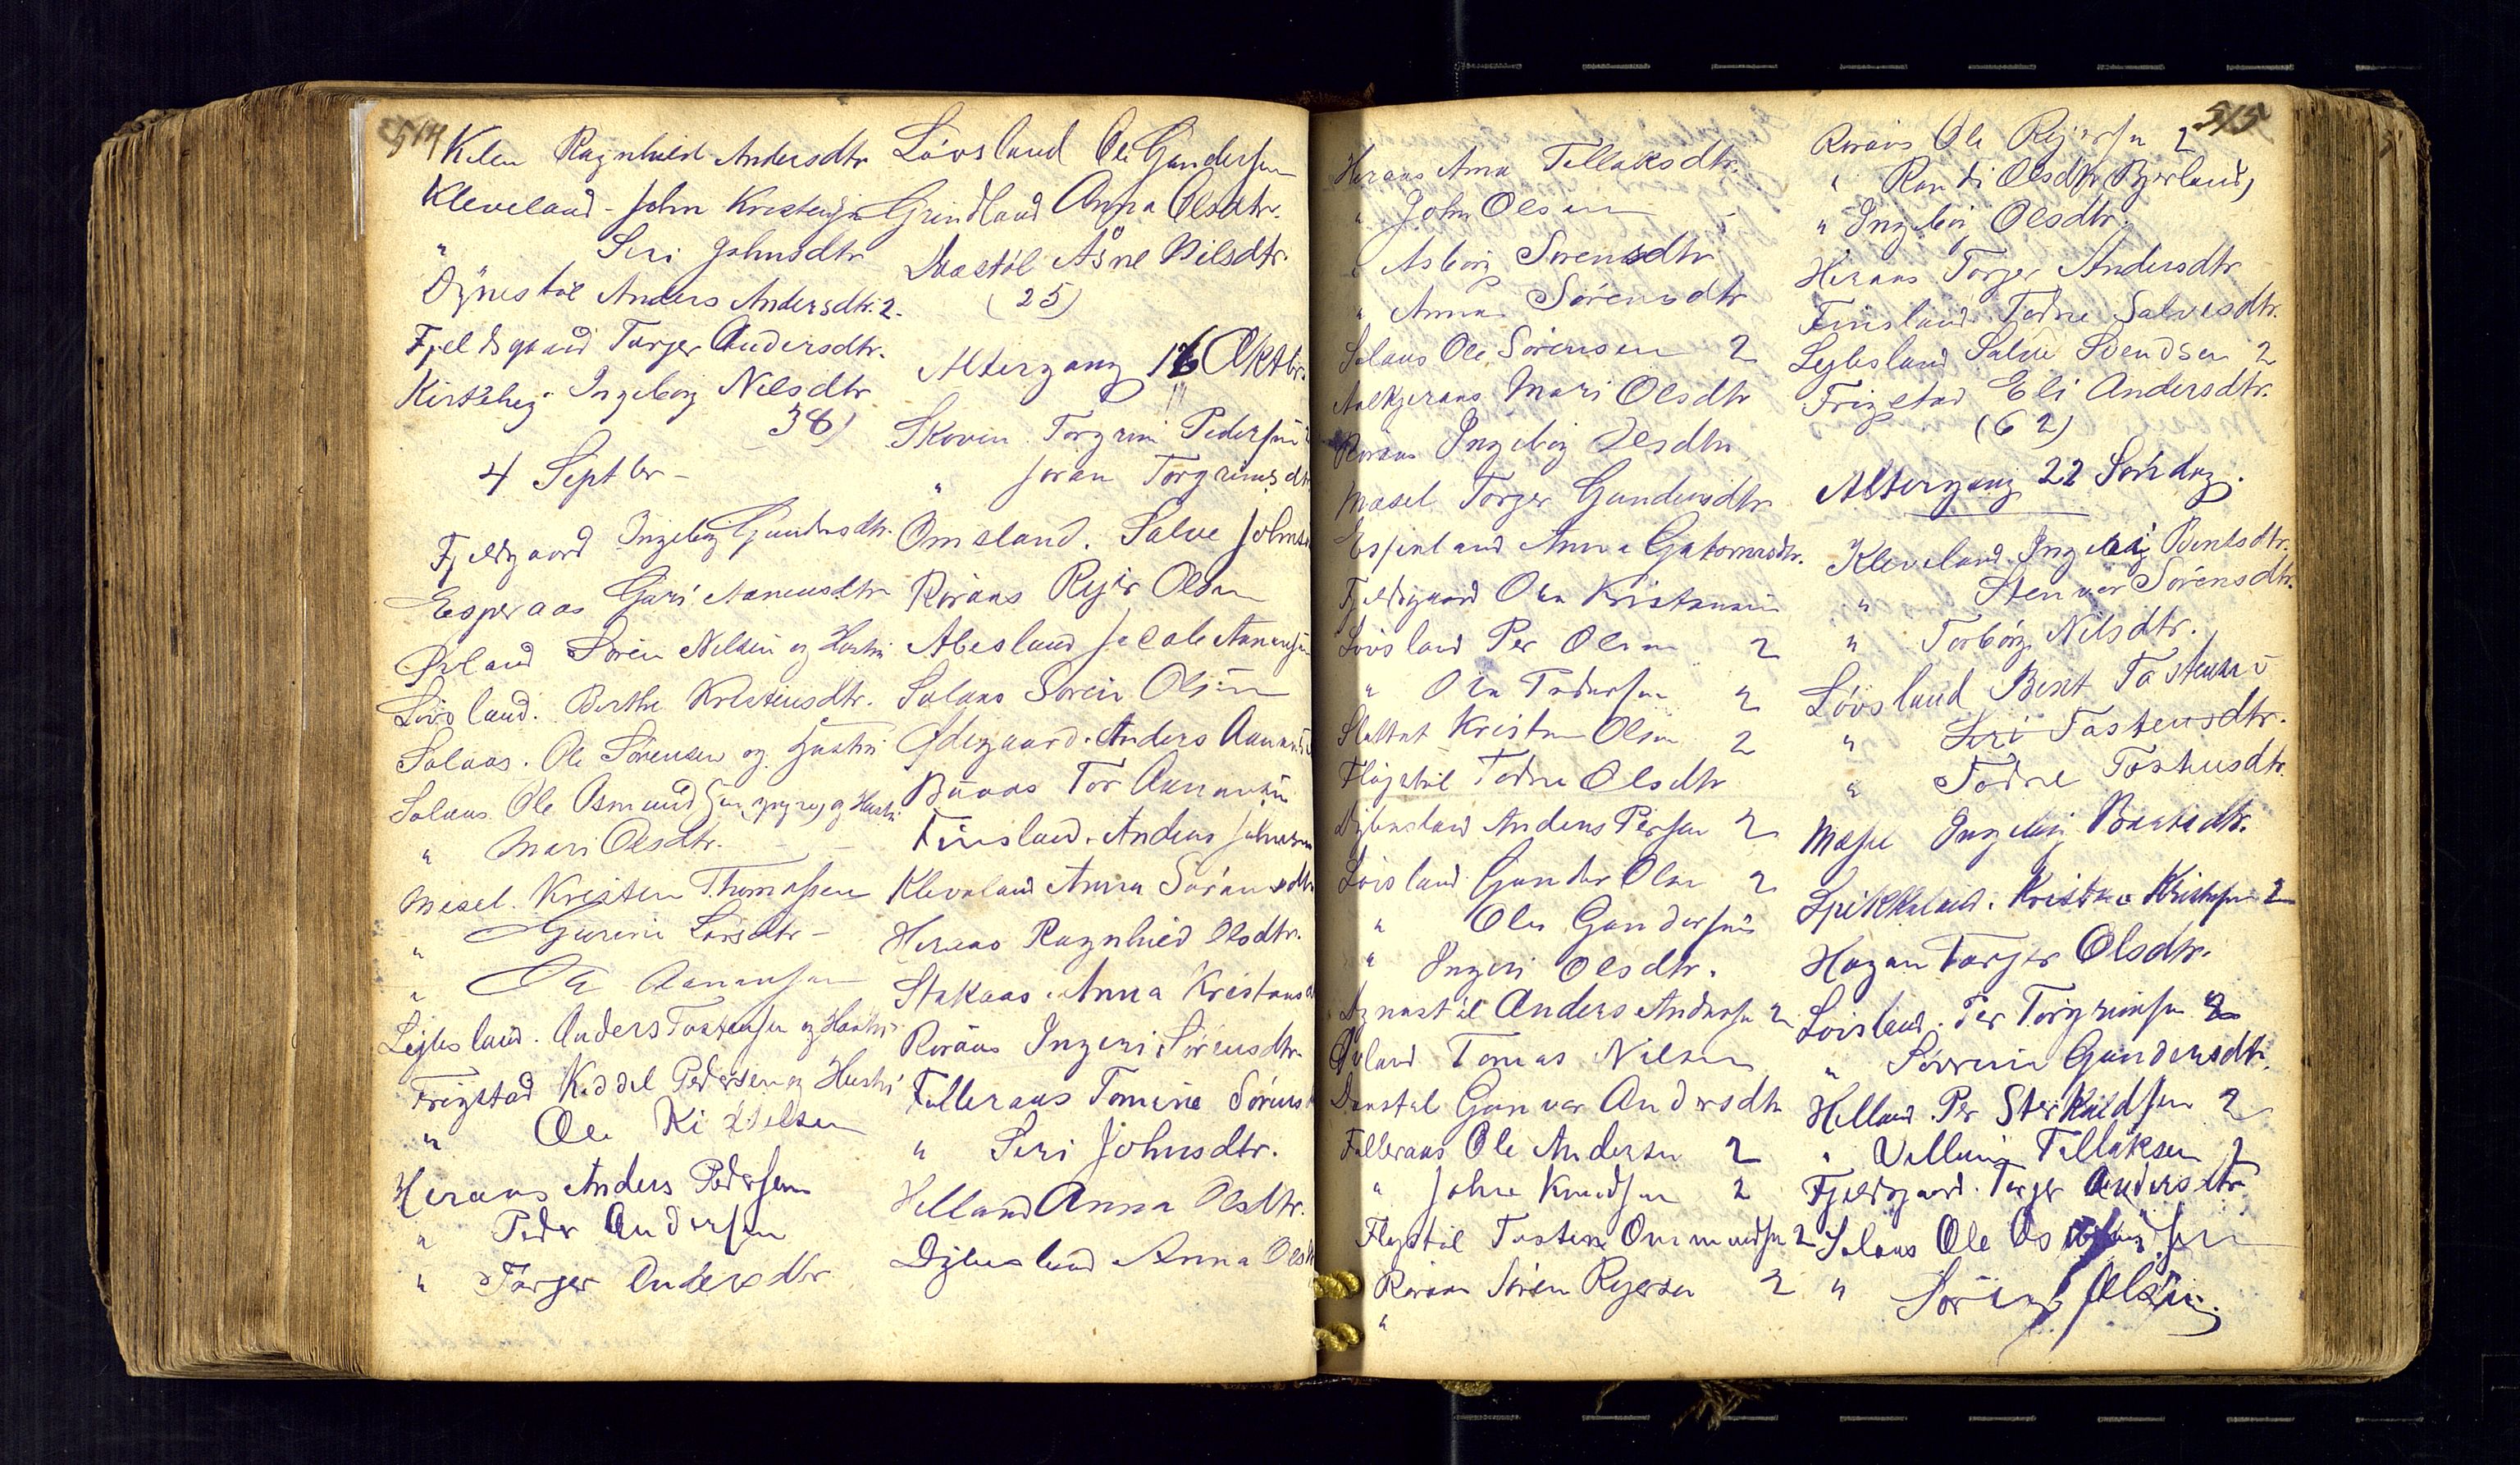 514
Kilen Ragnhild Andersdtr
Kleveland - John Kristensen
" Siri Johnsdtr
Dynestøl Anders Andersdtr. 2.
Fjeldsgaard Torger Andersdtr.
Kirkehej Ingeborg Nilsdtr
38)
4 Septbr -
Fjeldgaard Ingeborg Gundersdtr.
Esperaas Guri Aanensdtr
Øvland Sören Nilsen og Hustru
Lövsland. Berthe Kristensdtr.
Solaas. Ole Sörensen og Hustru
Solaas Ole Osmundsen og Hustru
" Mari Olsdtr. -
Mesel. Kristen Thomassen
" Gurine Larsdtr -
" Ole Aanensen
Lejlesland. Anders Tostensen og Hustru
Frigstad Kiddel Pedersen og Hustru
" Ole Kiddelsen
Heraas Anders Pedersen
" Peder Andersen
" Torger Andersdtr
Lövsland Ole Gundersen
Grindland Anna Olsdtr.
Daastöl Åsne Nilsdtr.
(25)
Altergang 16 Oktbr.
Skoven. Torgrim Pedersen
" Joran Torgrimsdtr
Omsland. Salve Johnsen
Röraas Rejer Olsen
Abesland Jacob Aanensen
Solaas Sören Olsen
Ødegaard. Anders Aanensen
Buaas Tor Aanensen
Finsland. Anders Johnsen
Kleveland Anna Sörensdtr
Heraas Ragnhild Olsdtr.
Stakaas. Anna Kristensd
Röraas Ingeri Sörensdtr.
Falleraas Tomine Sörens
" Siri Johnsdtr.
Helland Anna Olsdtr.
Djbesland Anna Olsdtr
515
Heraas Anna Tellaksdtr.
" John Olsen
" Asborg Sorensdtr
" Anna Sörensdtr
Solaas Ole Sörensen 2
Mari Olsdtr
Röraas Ingeborg Olsdtr
Mæsel Torger Gundersdtr
Espenland Anna
Fjeldsgaard Ola Kristensen
Lövsland Per Olsen 2
" Ola Pedersen 2
Slettet Kristen Olsen 2
Flöystöl Todne Olsdtr
Anders Persen 2
Lövsland Gunder Olsen 2
" Ole Gundersen
" Ingeri Olsdtr.
Dynestöl Anders Andersen 2
Øvland Tomas Nilsen
Daastöl Gunvor Andersdtr
Falleraas Ole Andersen 2
" John Knudsen 2
Fløystöl Tosten Ommundsen 2
Röraas Sören Rejersen 2
"
Röraas Ole Rejersen 2
" Randi Olsdtr Bjerland,
" Ingeborg Olsdtr.
Heraas Torger Andersdtr
Finsland Todne Salvesdtr.
Lejlesland Salve Svendsen 2
Frigstad Eli Andersdtr.
(62)
Altergang 22 Söndag.
Kleveland Ingeborg Bentsdtr.
" Stenvor Sörensdtr.
" Torborg Nilsdtr.
Lövsland Bent Tostensen
" Siri Tostensdtr.
" Todne Tostensdtr.
Mæsel Ingeborg Bentsdtr.
Spikkeland. Kristen Kristensen 2
Hagen Torger Olsdtr.
Lövsland. Per Torgrimsen 2
" Sörine Gundersdtr.
Helland. Per Sterkildsen 2
" Vellum Tellaksen 2
Fjeldsgaard. Torger Andersdtr
Solaas Ole Osmundsen
" Sören Olsen.